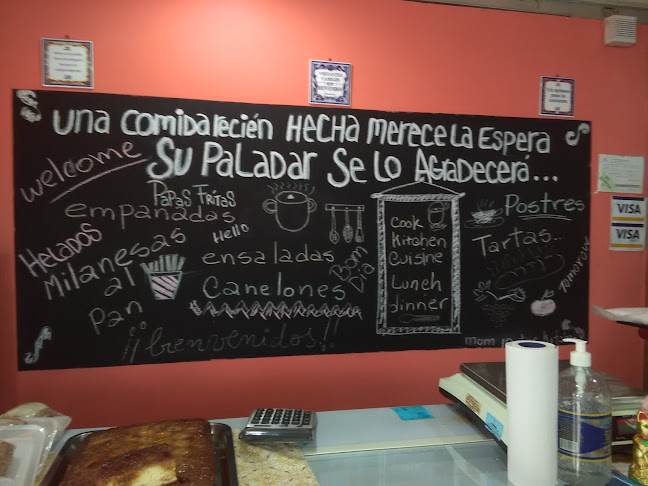 una comida recién HECHA merece LA ESPERA
Su PALADAR Se Lo AgrADecerá...
welcome
PAPAS FRITAS
empanadas
Hello
HELADOS
Milanesas
al
pan
ensaladas
Canelones
Bom
Dia
¡¡bienvenidos!!
Cook
Kitchen
Cuisine
Lunch
dinner
Postres
Tartas...
mom
VISA
VISA